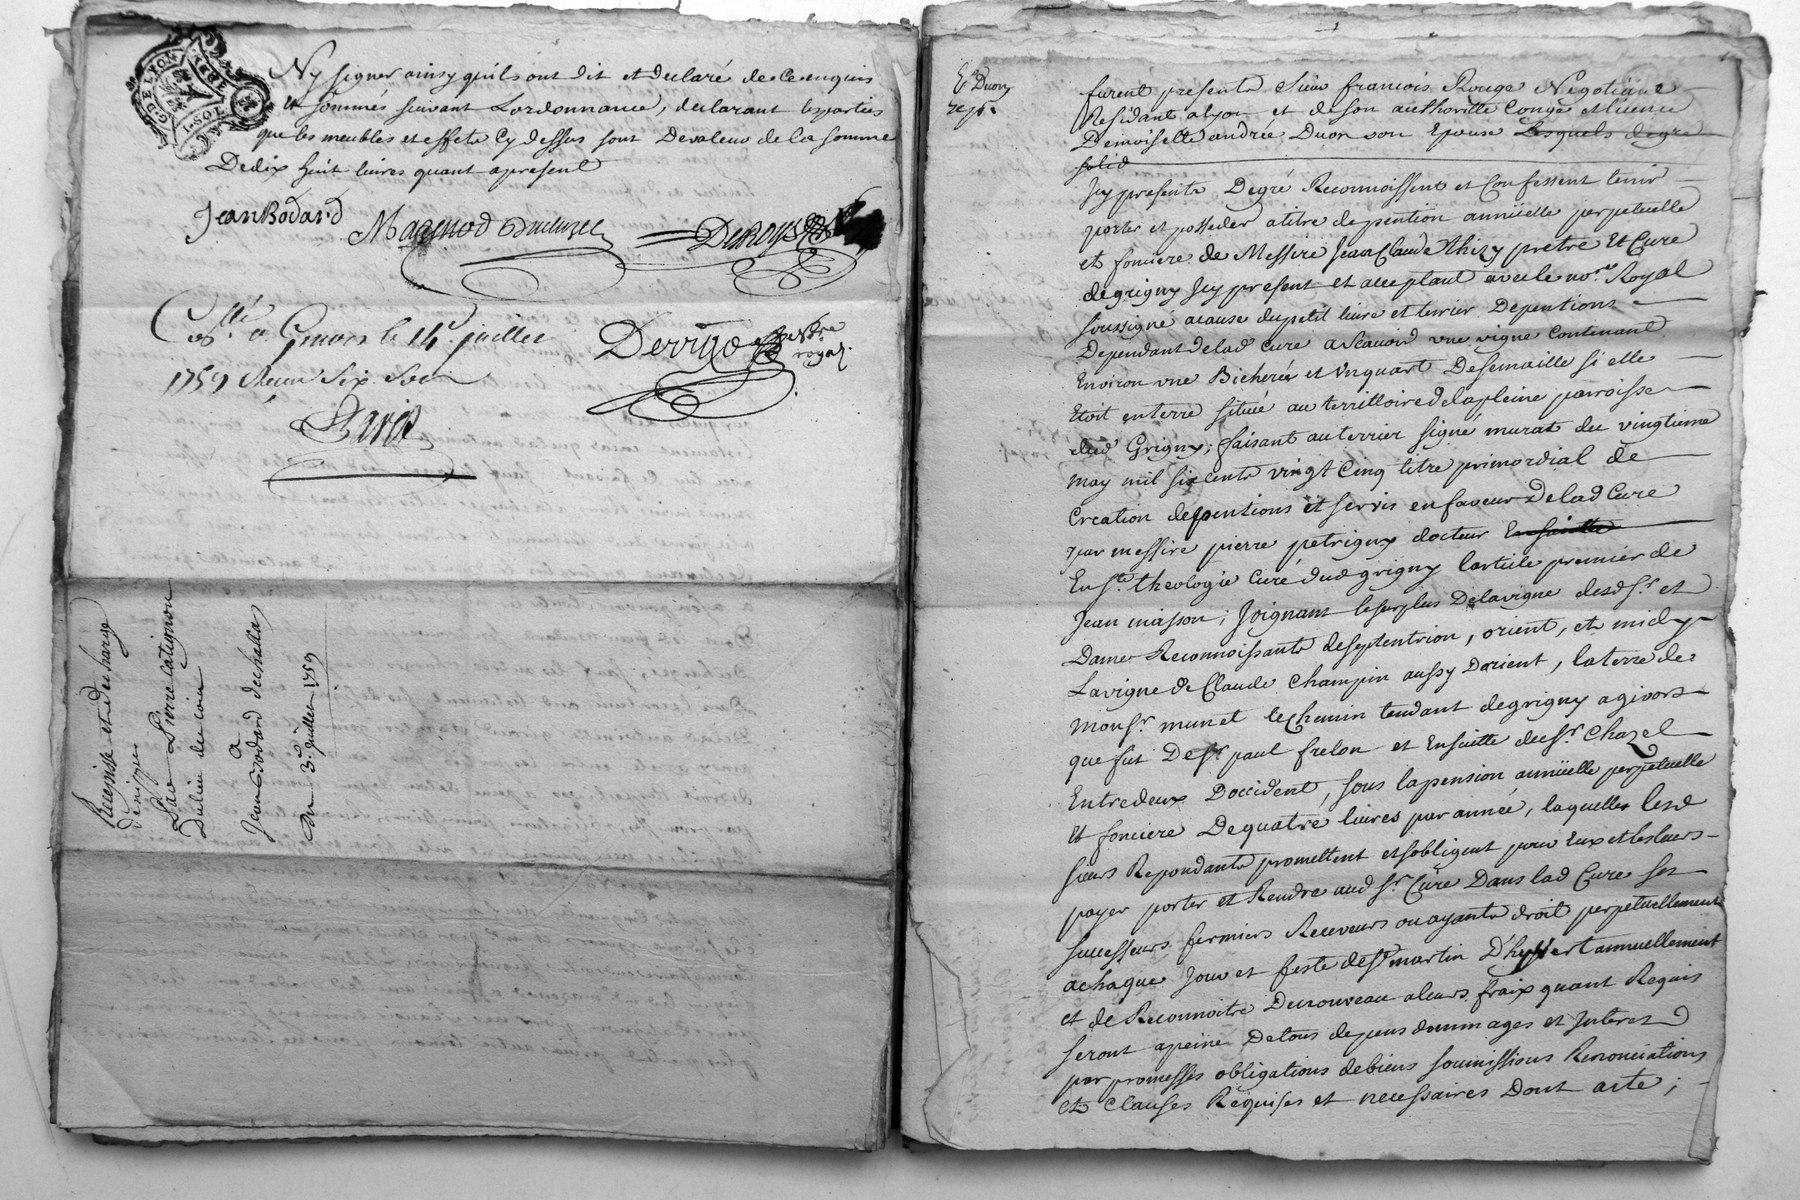 G. DE LYON
Ny signer ainsy quils ont dit et declaré de ce enquis
et sommés suivant Lordonnance, declarant lesparties
que les meubles et effets Cy dessus sont Devaleur de la somme
Dedix huit livres quant apresent
JeanBodard
Con.llé a Givors le 14e. juillet
1759 Reçu Six Sols
royal.
Recepissé et decharge
Jean Bodard
a
Du 3e. juillet 1759
furent presents Sieur francois Rouge Negotiant
Residant alyon et deson authoritté Congé et licence
Demoiselle andrée Duon son Epouse Lesquels degré
solid
Icy presents Degré Reconnoissent et Confessent tenir
porter et posseder atitre depention annüelle perpetuelle
et fonciere de Messire Jean Claude thizy pretre Et Curé
degrigny Icy present et acceptant avec le no.re Royal
soussigné acause dupetit livre et terrier Depentions
Dependant delad Cure aScavoir une vigne contenant
Environ une Bicherée et unquart Desemaille si elle
Etoit enterre située au territtoire delapleine parroisse
dud Grigny; faisant auterrier signé murat du vingtieme
may mil sixcents vingt Cinq titre primordial de
Creation depentions et servis enfaveur delad Cure
par messire pierre petrigny docteur Ensuitte
En Ste. theologie Curé dud grigny larticle premier de
Jean masson; Joignant lesurplus Delavigne desd Sr. et
Dame Reconnoissants deseptentrion, orient, et midy
Lavigne de Claude Champin aussy Dorient, laterre de
monsr. munet lechemin tendant degrigny agivors
que fut De Sr. paul frelon et Ensuitte de Sr. Chazel
Entredeux Doccident, sous lapension annüelle perpetuelle
Et fonciere Dequatre livres parannée, laquelle lesd
sieurs Repondants promettent etsobligent pour Eux etlesleurs
payer porter et Rendre aud Sr. Curé Dans lad Cure ses
successeurs fermiers Receveurs ouayants droit perpetuellement
achaque Jour et feste deSt. martin D'hyvert annuellement
et de Reconnoitre Denouveau aleurs fraix quant Requis
seront apeine Detous depens dommages et Interest
par promesses obligations debiens soumissions Renonciations
et Clauses Requises et necessaires Dont acte;